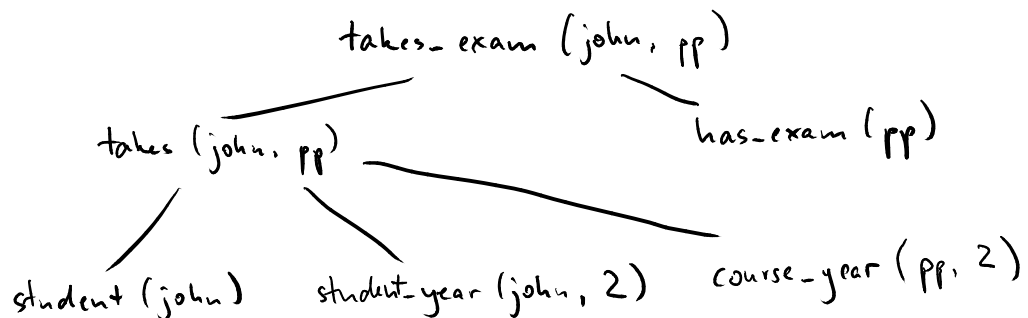 takes_exam (john, pp)
takes (john, pp)
has_exam (pp)
student (john)
student_year (john, 2)
course_year (pp, 2)